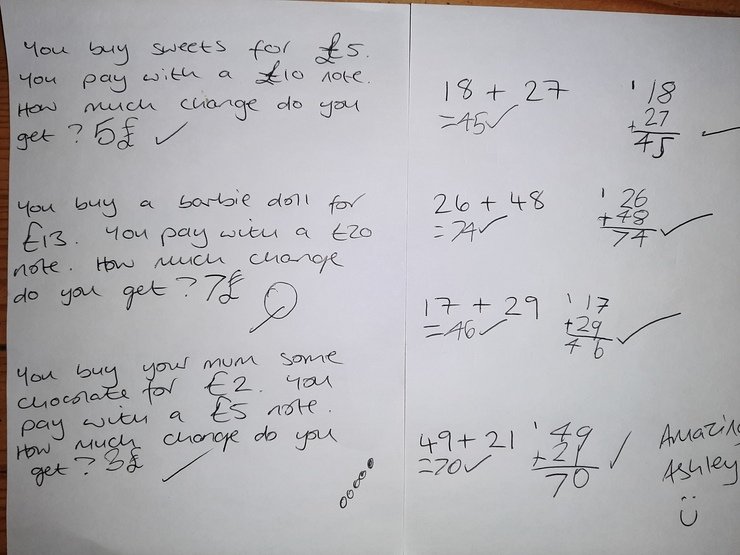 You buy sweets for £5.
You pay with a £10 note.
How much change do you
get? 5£ ✓
You buy a barbie doll for
£13. You pay with a £20
note. How much change
do you get? 7£
You buy your mum some
chocolate for £2. You
pay with a £5 note.
How much change do you
get? 3£ ✓
18 + 27
=45✓
1 18
+27
45 ✓
26 + 48
=74✓
1 26
+48
74 ✓
17 + 29
=46✓
1 17
+29
46 ✓
49+21
=70✓
1 49
+21
70 ✓
Ashley